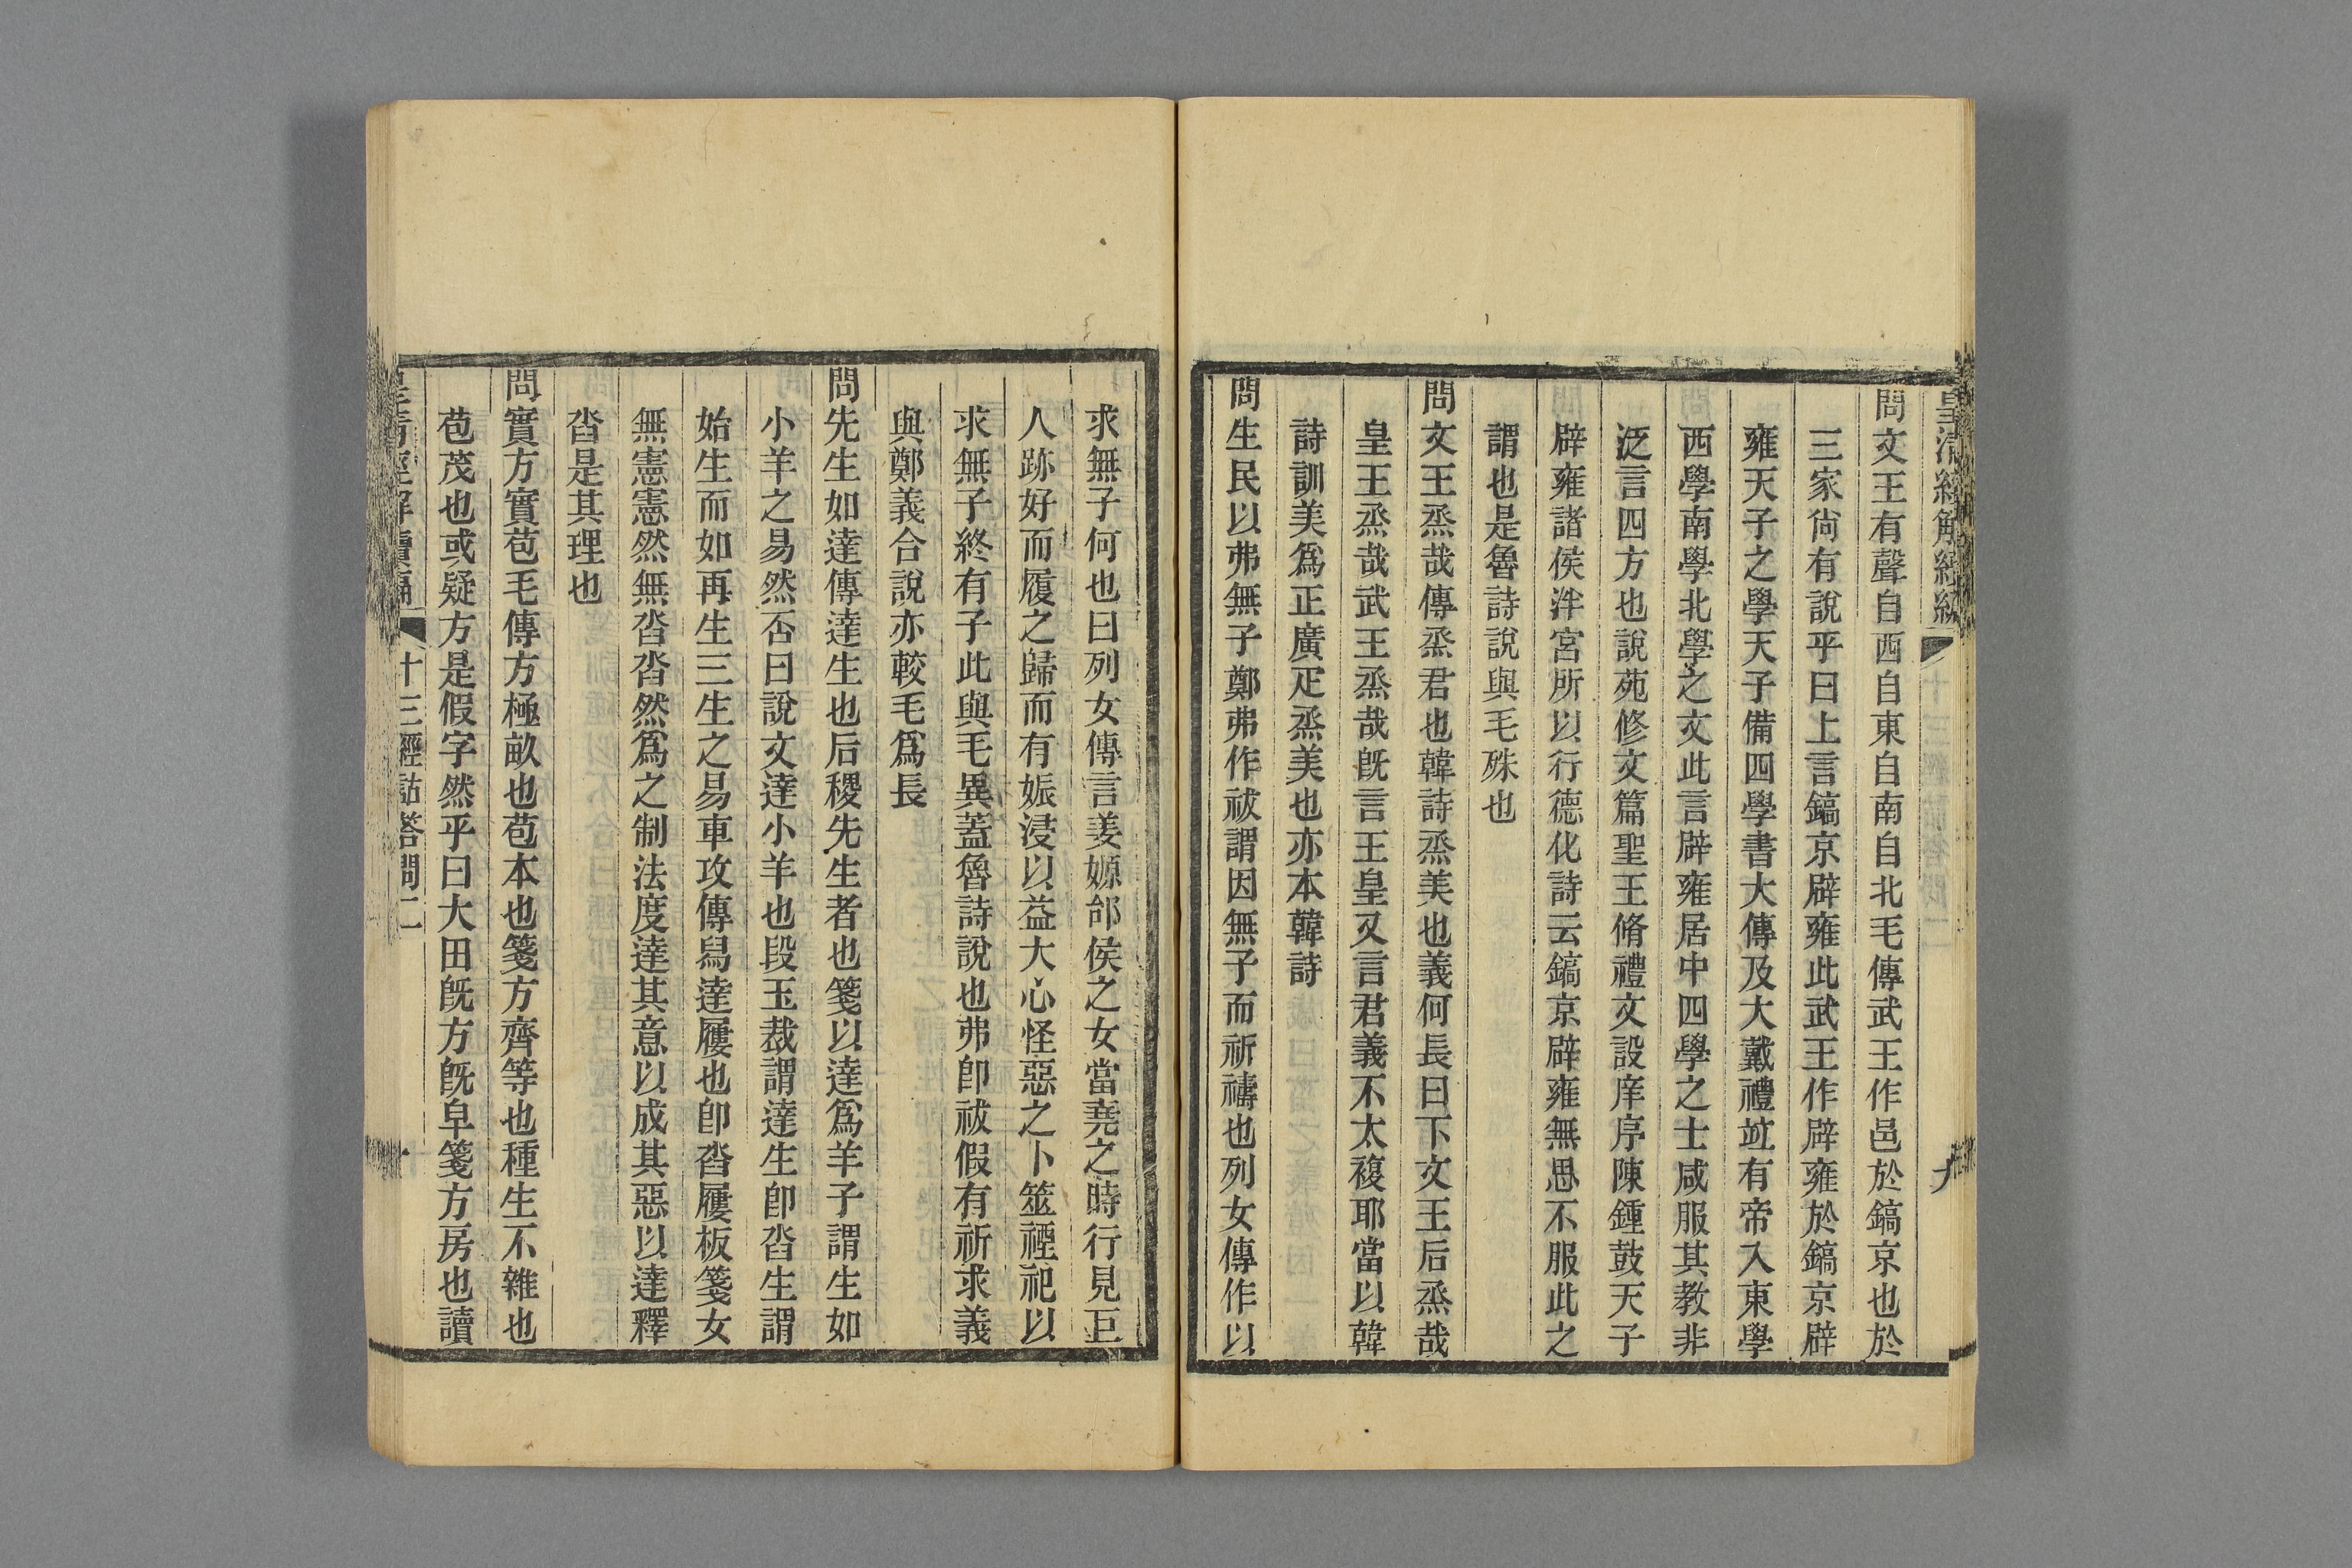 問文王有聲自西自東自南自北毛傳武王作邑於鎬京也於
三家尙有說乎曰上言鎬京辟雍此武王作辟雍於鎬京辟
雍天子之學天子備四學書大傳及大戴禮竝有帝入東學
西學南學北學之文此言辟雍居中四學之士咸服其教非
泛言四方也說苑修文篇聖王脩禮文設庠序陳鍾鼓天子
辟雍諸侯泮宮所以行德化詩云鎬京辟雍無思不服此之
謂也是魯詩說與毛殊也
問文王烝哉傳烝君也韓詩烝美也義何長曰下文王后烝哉
皇王烝哉武王烝哉旣言王皇又言君義不太複耶當以韓
詩訓美爲正廣疋烝美也亦本韓詩
問生民以弗無子鄭弗作祓謂因無子而祈禱也列女傳作以
求無子何也曰列女傳言姜嫄邰侯之女當堯之時行見巨
人跡好而履之歸而有娠浸以益大心怪惡之卜筮禋祀以
求無子終有子此與毛異蓋魯詩說也弗卽祓假有祈求義
與鄭義合說亦較毛爲長
問先生如達傳達生也后稷先生者也箋以達爲羊子謂生如
小羊之易然否曰說文達小羊也段玉裁謂達生卽沓生謂
始生而如再生三生之易車攻傳舄達屨也卽沓屨板箋女
無憲憲然無沓沓然爲之制法度達其意以成其惡以達釋
沓是其理也
問實方實苞毛傳方極畝也苞本也箋方齊等也種生不雜也
苞茂也或疑方是假字然乎曰大田旣方旣皁箋方房也讀
十三經詁答問二